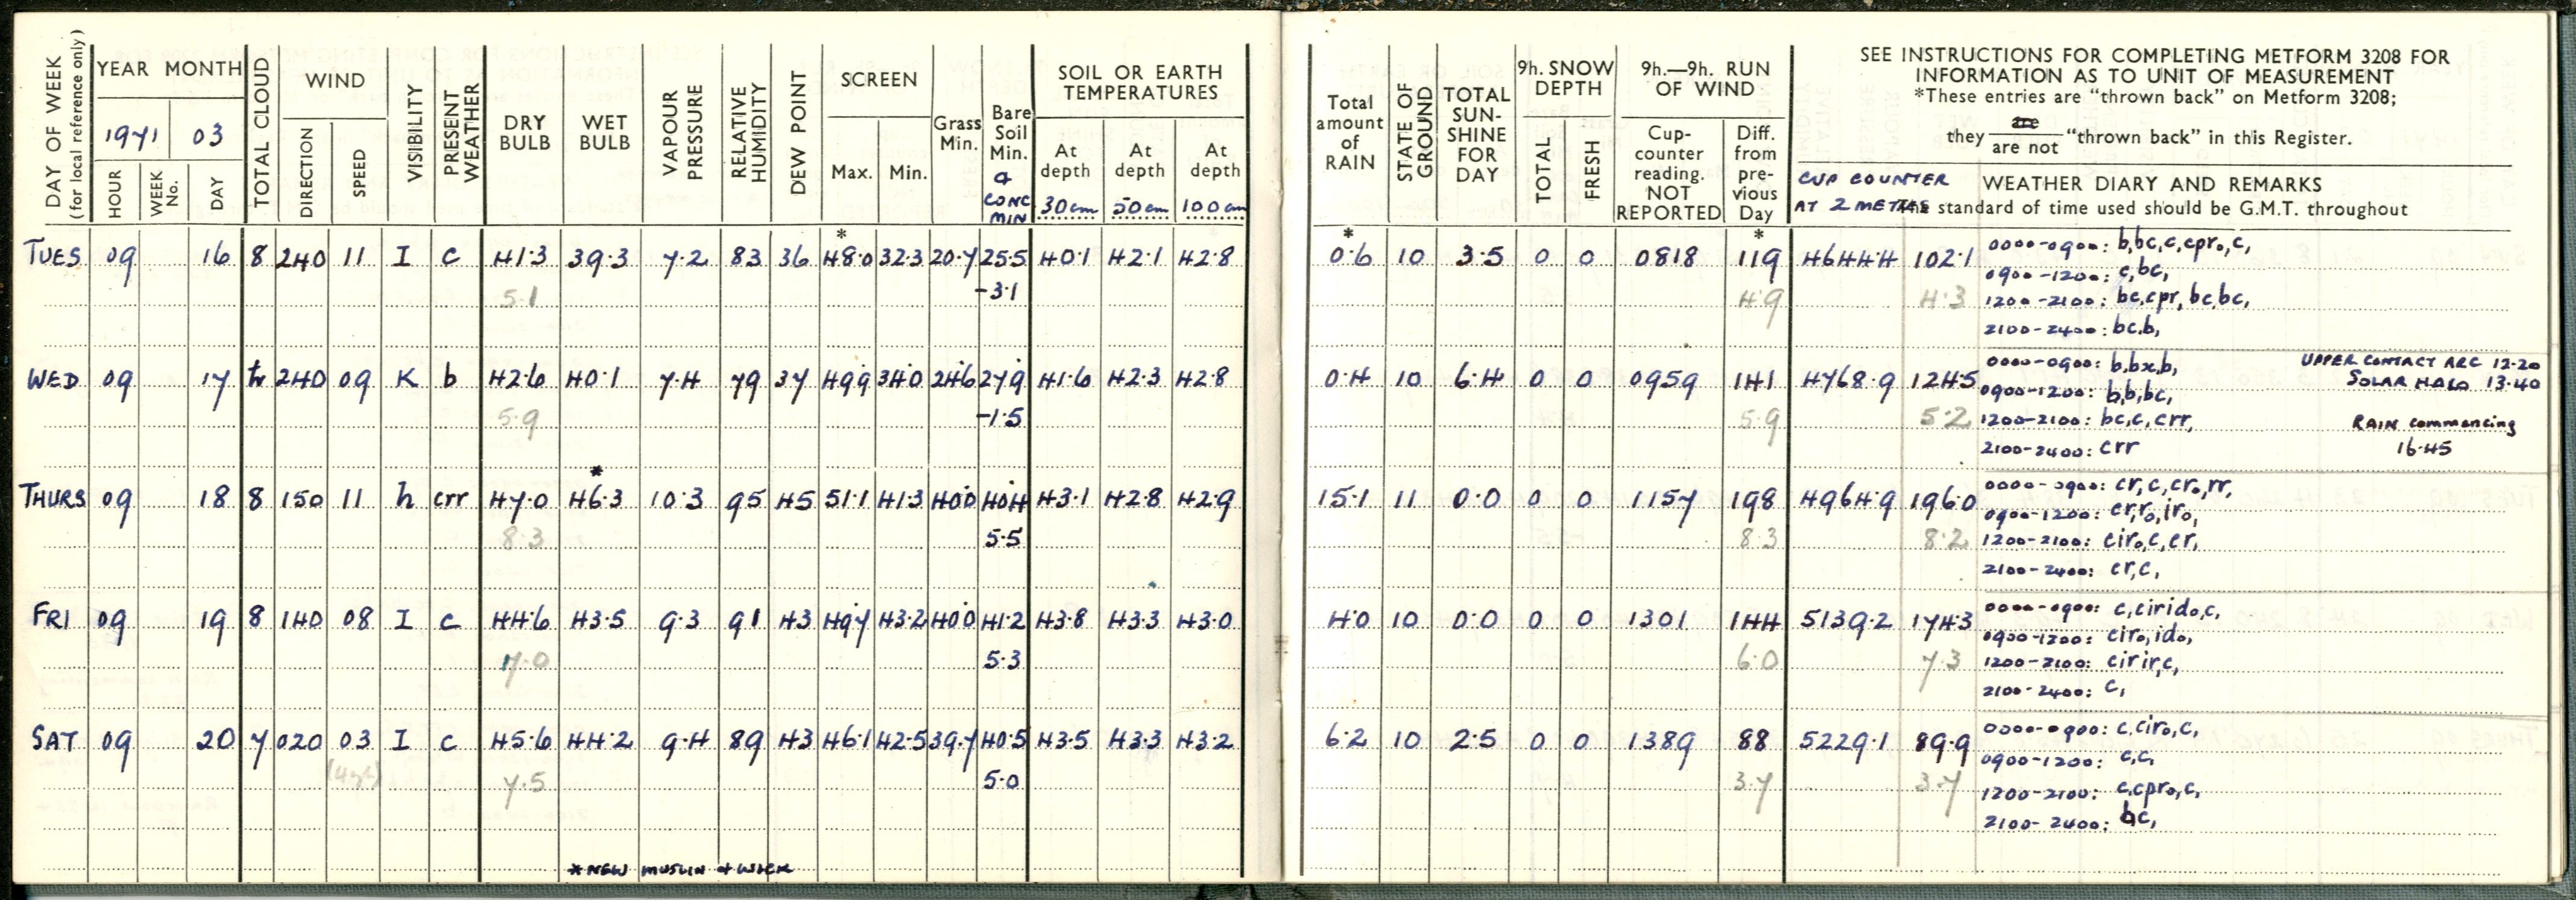 DAY OF WEEK
(for local reference only)
YEAR MONTH
1971 03
HOUR
WEEK No.
DAY
TOTAL CLOUD
WIND
DIRECTION
SPEED
VISIBILITY
PRESENT WEATHER
DRY BULB
WET BULB
VAPOUR PRESSURE
RELATIVE HUMIDITY
DEW POINT
SCREEN
Max. Min.
Grass Min.
Bare Soil Min.
CONC MIN
SOIL OR EARTH TEMPERATURES
At depth 30cm
At depth 50cm
At depth 100cm
Total amount of RAIN
STATE OF GROUND
TOTAL SUN-SHINE FOR DAY
9h. SNOW DEPTH
TOTAL
FRESH
9h.—9h. RUN OF WIND
Cup-counter reading. NOT REPORTED
Diff. from pre-vious Day
SEE INSTRUCTIONS FOR COMPLETING METFORM 3208 FOR
INFORMATION AS TO UNIT OF MEASUREMENT
*These entries are "thrown back" on Metform 3208;
they are / are not "thrown back" in this Register.
CUP COUNTER
AT 2 METRES
WEATHER DIARY AND REMARKS
The standard of time used should be G.M.T. throughout
* * *
TUES 09 16 8 240 11 I c 41·3 39·3 7·2 83 36 48·0 32·3 20·7 25·5 40·1 42·1 42·8 0·6 10 3·5 0 0 0818 119 4644·4 102·1 0000-0900: b,bc,c,cpr₀,c,
0900-1200: c,bc,
5·1 -3·1 4·9 4·3 1200-2100: bc,cpr,bc,bc,
2100-2400: bc,b,
WED 09 17 tr 240 09 K b 42·6 40·1 7·4 79 37 49·9 34·0 24·6 27·9 41·6 42·3 42·8 0·4 10 6·4 0 0 0959 141 4768·9 124·5 0000-0900: b,bx,b, UPPER CONTACT ARC 12·20
0900-1200: b,b,bc, SOLAR HALO 13·40
5·9 -1·5 5·9 5·2 1200-2100: bc,c,crr, RAIN commencing
2100-2400: crr 16·45
*
THURS 09 18 8 150 11 h crr 47·0 46·3 10·3 95 45 51·1 41·3 40·0 40·4 43·1 42·8 42·9 15·1 11 0·0 0 0 1157 198 4964·9 196·0 0000-0900: cr,c,cr₀,rr,
0900-1200: cr,r₀,ir₀,
8·3 5·5 8·3 8·2 1200-2100: cir₀,c,cr,
2100-2400: cr,c,
FRI 09 19 8 140 08 I c 44·6 43·5 9·3 91 43 49·7 43·2 40·0 41·2 43·8 43·3 43·0 4·0 10 0·0 0 0 1301 144 5139·2 174·3 0000-0900: c,cirid₀,c,
0900-1200: cir₀,id₀,
7·0 5·3 6·0 7·3 1200-2100: cirir,c,
2100-2400: c,
SAT 09 20 7 020 03 I c 45·6 44·2 9·4 89 43 46·1 42·5 39·7 40·5 43·5 43·3 43·2 6·2 10 2·5 0 0 1389 88 5229·1 89·9 0000-0900: c,cir₀,c,
0900-1200: c,c,
7·5 5·0 3·7 3·7 1200-2100: c,cpr₀,c,
2100-2400: bc,
* NEW MUSLIN + WICK